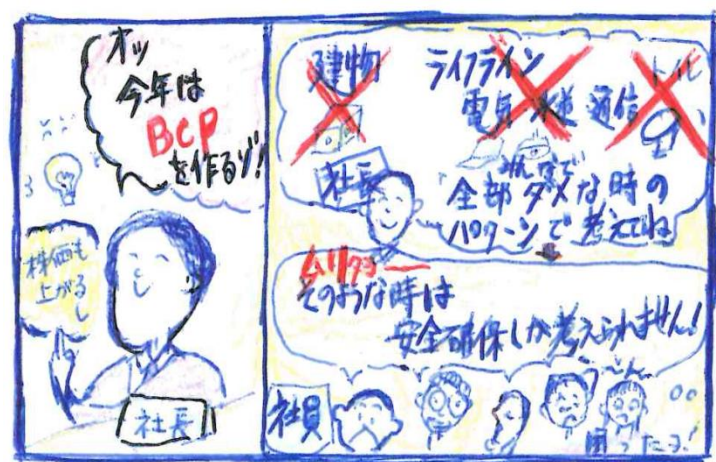 オッ
今年は
BCP
を作るゾ!
株価も
上がるし
社長
建物 ライフライン トイレ
電気 水道 通信
社長
みんなで
全部ダメな時の
パターンで考えてね
ムリダヨー
そのような時は
安全確保しか考えられません!
社員
困ったヨ!